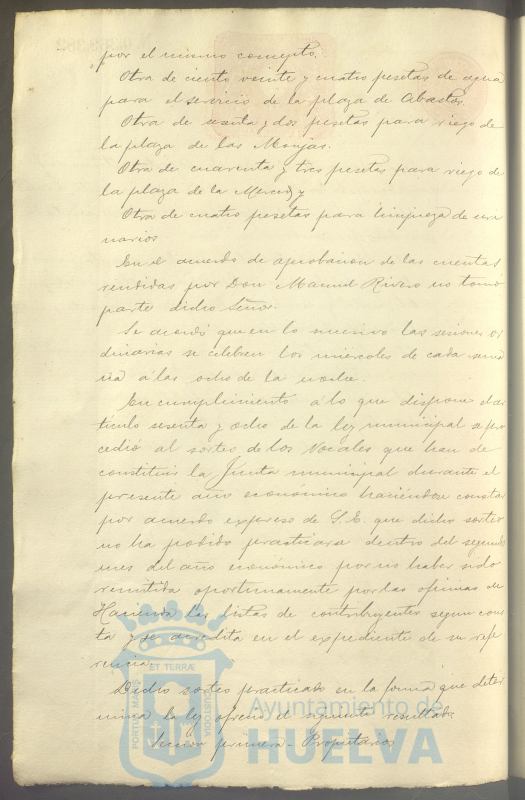 por el mismo concepto.
Otra de ciento veinte y cuatro pesetas de agua
para el servicio de la plaza de Abastos.
Otra de sesenta y dos pesetas para riego de
la plaza de las Monjas.
Otra de cuarenta y tres pesetas para riego de
la plaza de la Merced y
Otra de cuatro pesetas para limpieza de uri
narios
En el acuerdo de aprobacion de las cuentas
rendidas por Don Manuel Rivero no tomó
parte dicho Señor.
Se acordó que en lo sucesivo las sesiones or
dinarias se celebren los miércoles de cada sema
na á las ocho de la noche.
En cumplimiento á lo que dispone el ar
tículo sesenta y ocho de la ley municipal se pro
cedió al sorteo de los Vocales que han de
constituir la Junta municipal durante el
presente año económico haciéndose constar
por acuerdo expreso de S.E. que dicho sorteo
no ha podido practicarse dentro del segundo
mes del año económico por no haber sido
remitida oportunamente por las oficinas de
Hacienda las listas de contribuyentes segun cons
ta y se acredita en el expediente de su refe
rencia.
Dicho sorteo practicado en la forma que deter
mina la ley ofreció el siguiente resultado.
Seccion primera - Propietarios
PORTUS MARIS ET TERRÆ CUSTODIA
Ayuntamiento de
HUELVA